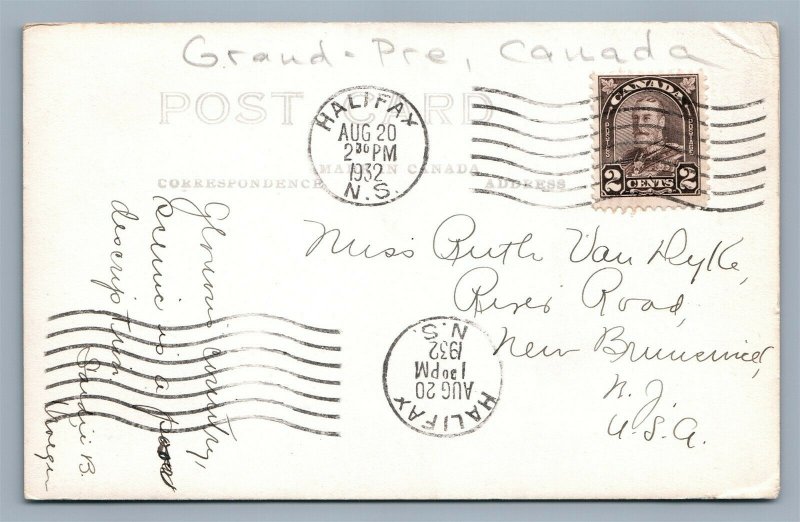 Grand-Pre, Canada
POST CARD
MADE IN CANADA
CORRESPONDENCE
ADDRESS
HALIFAX
AUG 20
2 30 PM
1932
N.S.
CANADA
POSTES
POSTAGE
2 CENTS 2
Miss Ruth Van Dyke,
River Road,
New Brunswick,
N.J.
U.S.A.
Glorious country,
Scenic is a poor
description
Sardji B.
HALIFAX
AUG 20
1 30 PM
1932
N.S.